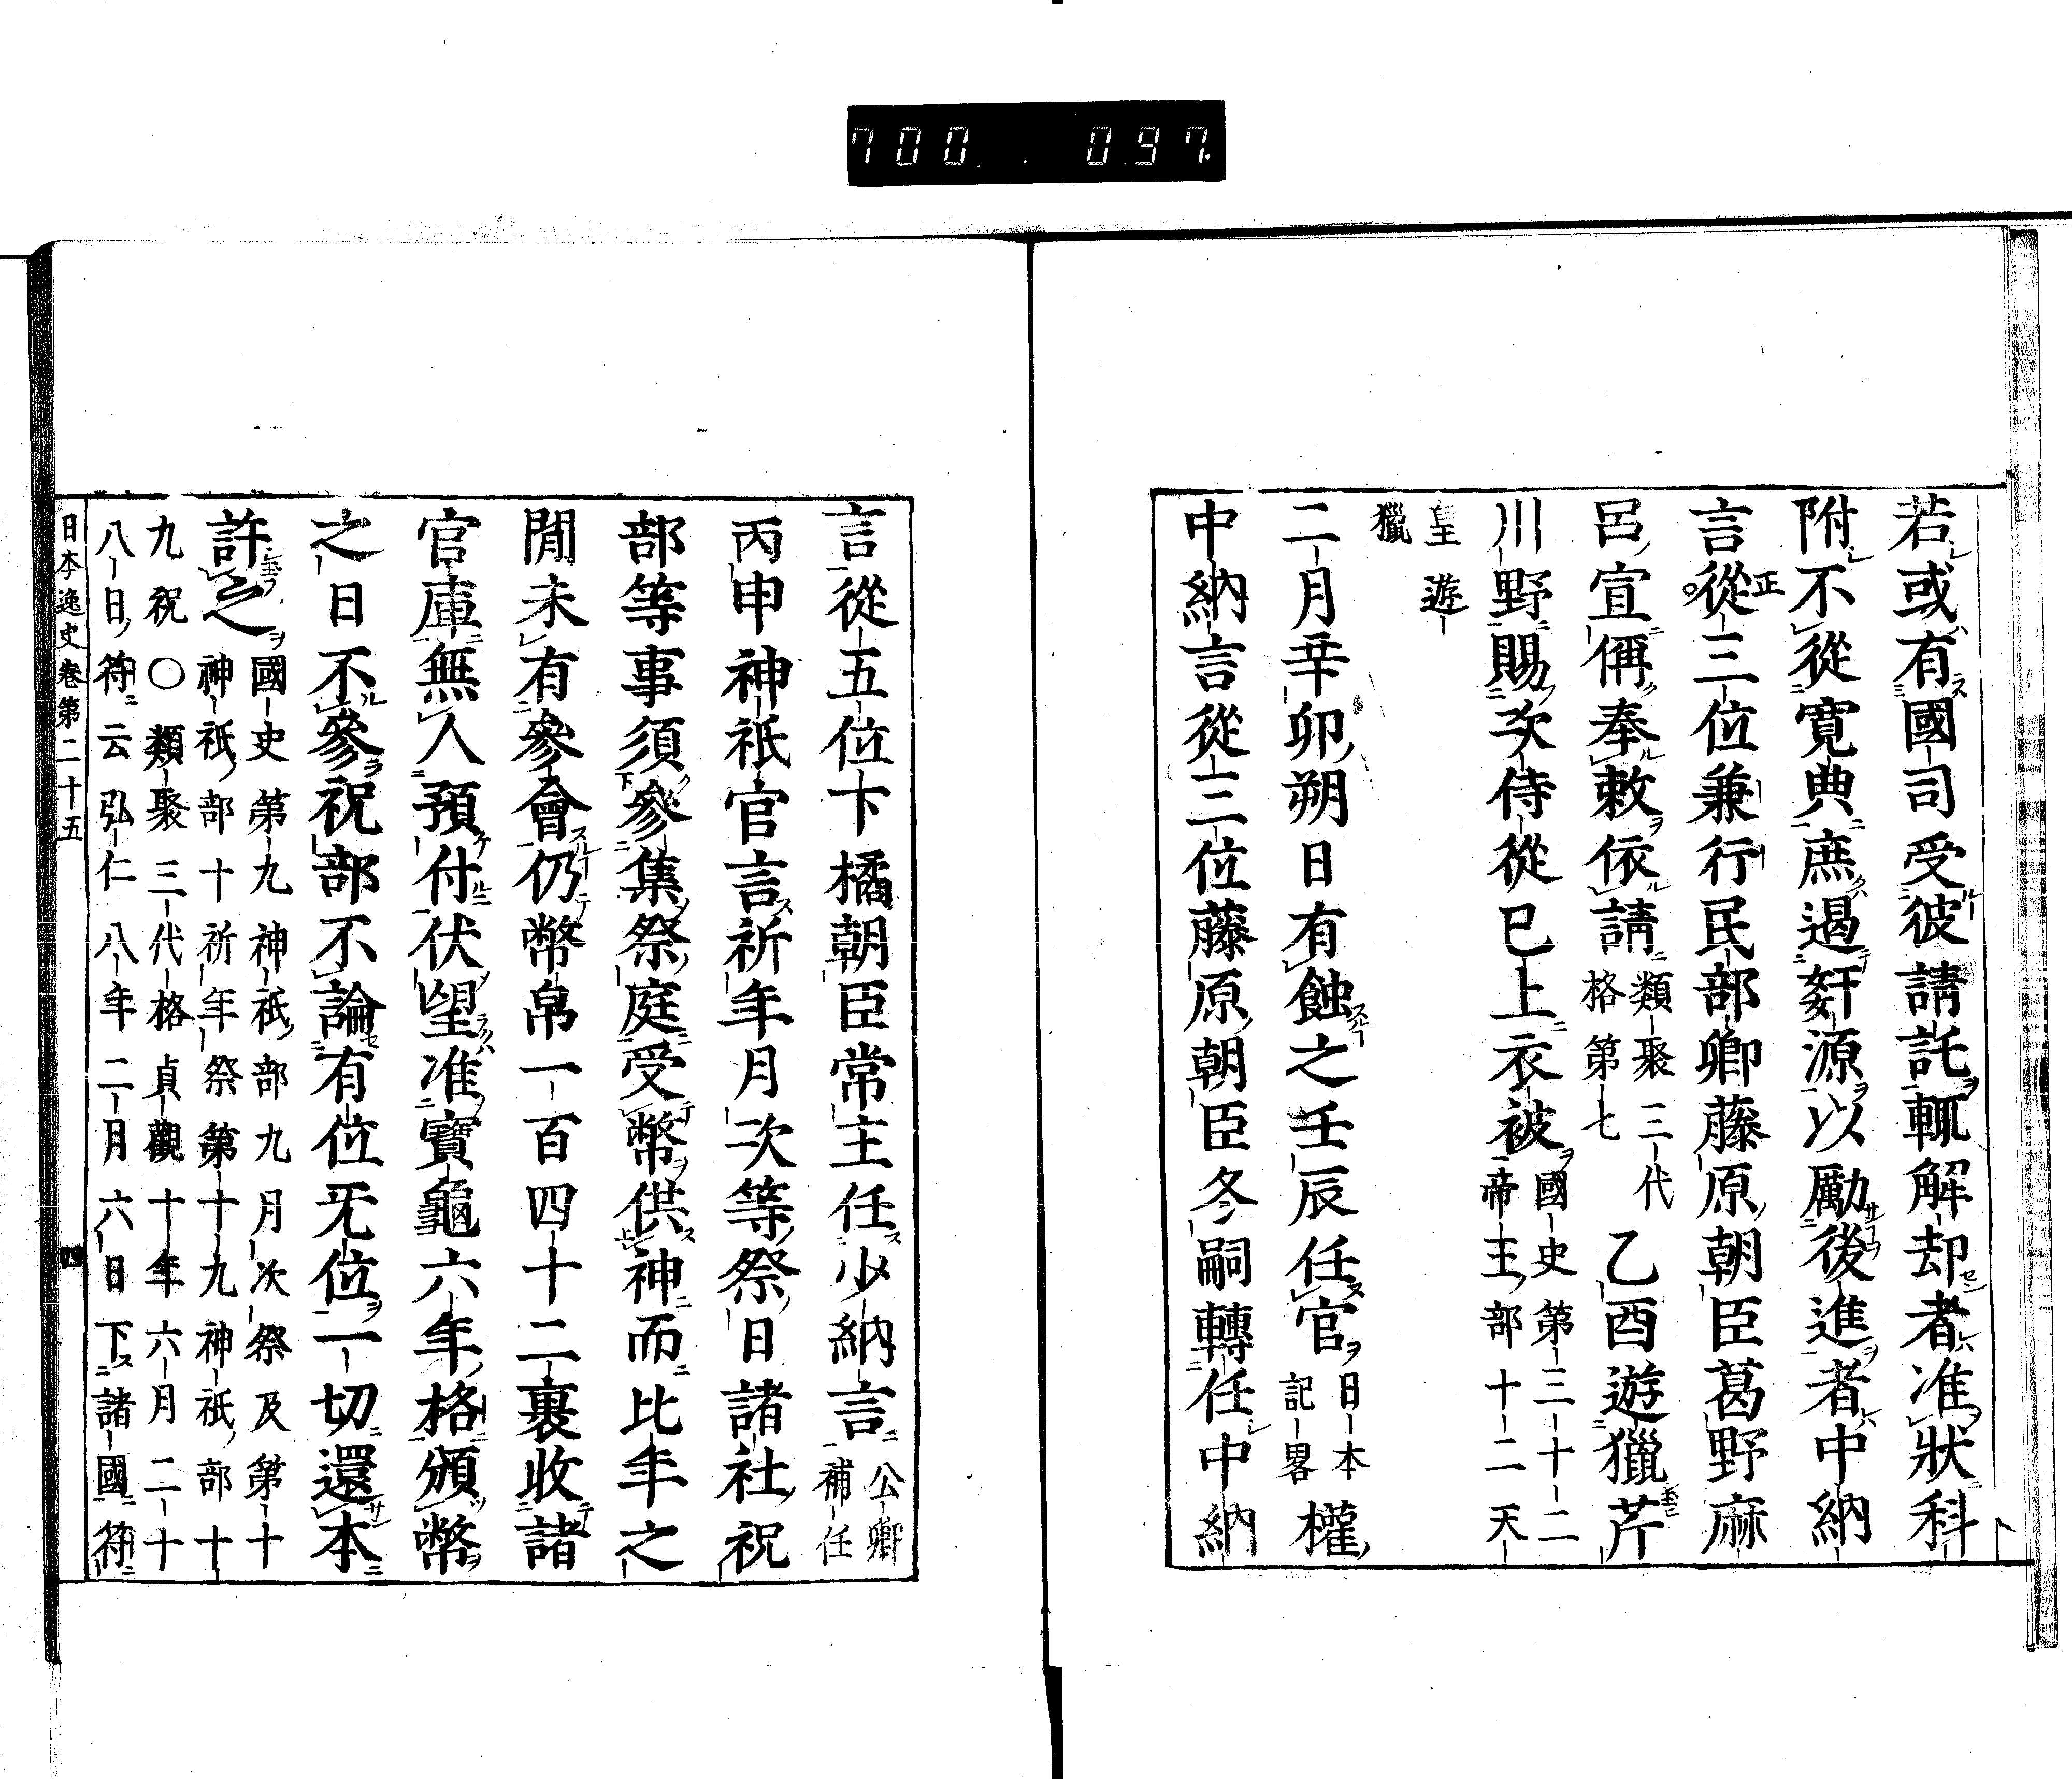 700 097
若或有國司受彼請託輙解却者准狀科
附不從寛典庶遏姧源以勵後進者中納
言從三位兼行民部卿藤原朝臣葛野麻
正
呂宣偁奉敕依請類聚三代格第七乙酉遊獵芹
川野賜次侍從已上衣被國史第三十二帝王部十二天
皇遊獵
二月辛卯朔日有蝕之壬辰任官日本記畧權
中納言從三位藤原朝臣冬嗣轉任中納
言從五位下橘朝臣常主任少納言公卿補任
丙申神祇官言祈年月次等祭日諸社祝
部等事須參集祭庭受幣供神而比年之
閒未有參會仍幣帛一百四十二裹收諸
官庫無人預付伏望准寶龜六年格頒幣
之日不參祝部不論有位无位一切還本
許之國史第九神祇部九月次祭及第十
神祇部十祈年祭第十九神祇部十
九祝〇類聚三代格貞觀十年六月二十
八日符云弘仁八年二月六日下諸國符
日本逸史卷第二十五 四